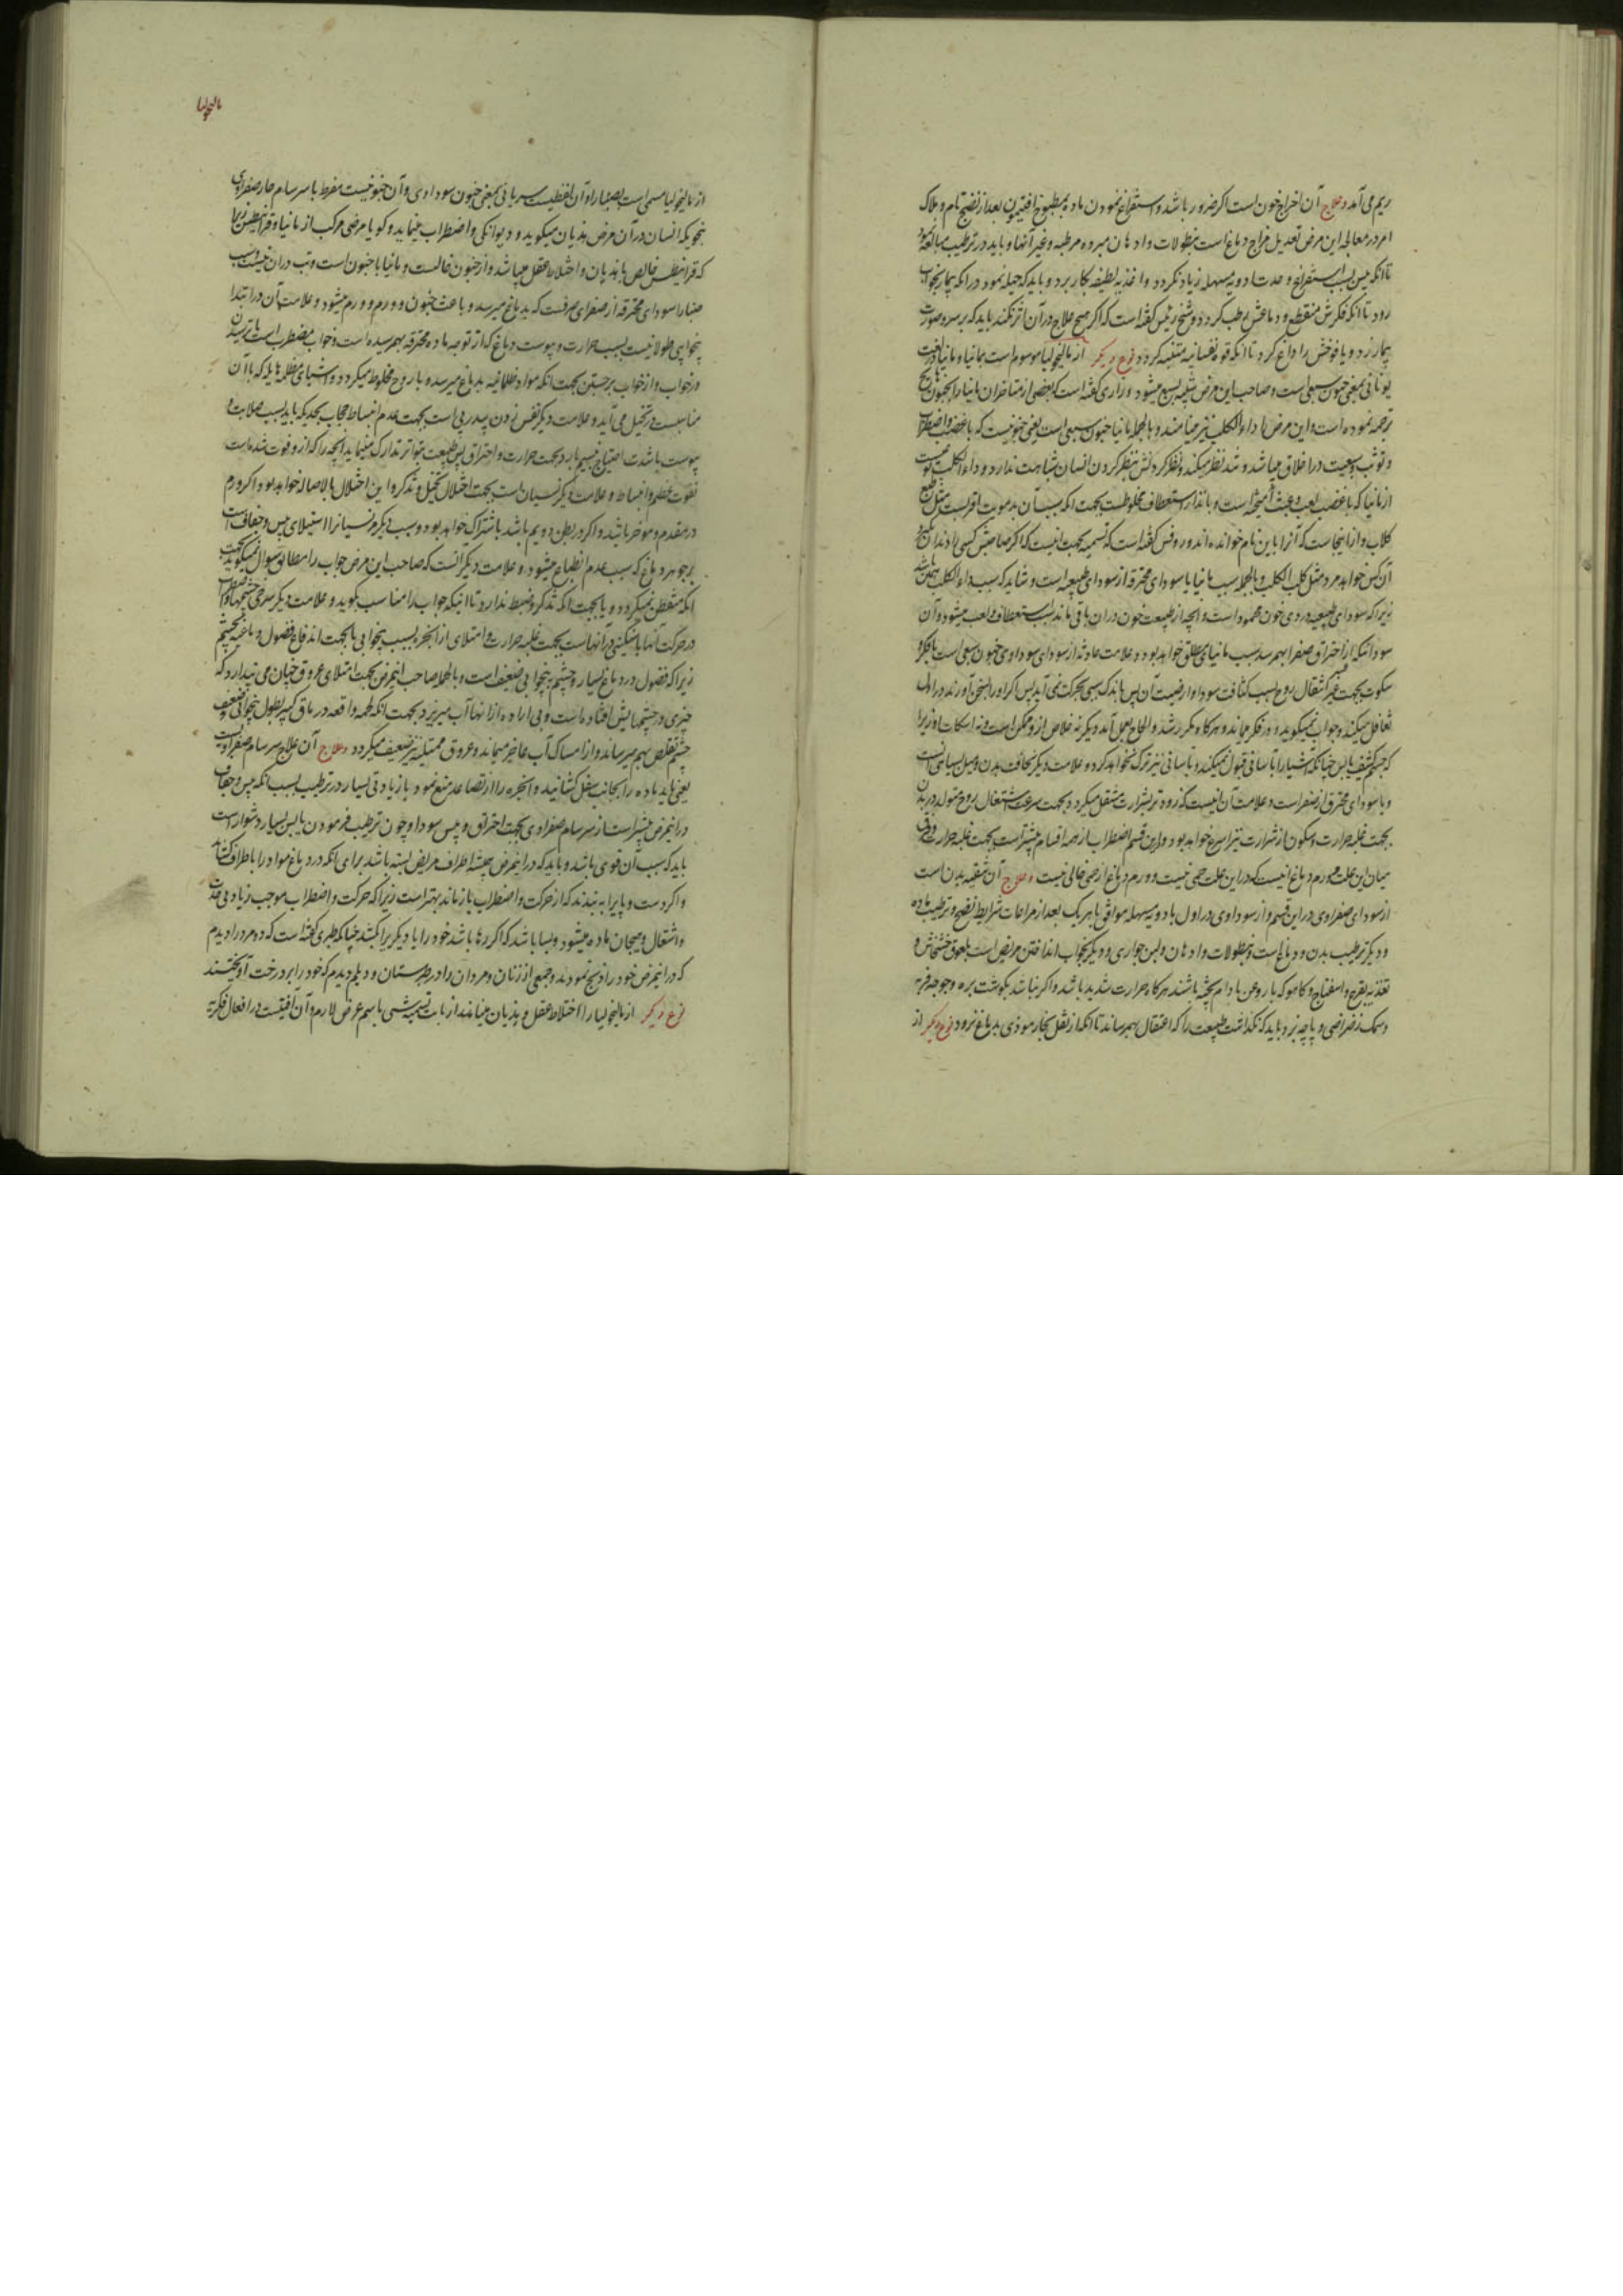 ریم می آمد و علاج آن اخراج خون است اکر ضرور باشد و استفراغ نمودن ماده بمطبوخ افتیمون بعد از نضج تام و ملاک
امر در معالجه این مرض تعدیل مزاج دماغ است بنطولات و ادهان مبرده مرطبه و غیر آنها و باید در ترطیب مبالغه نمود
تا انکه یبس بسبب استفراغ و حدت ادویه مسهله زیاد نکردد و اغذیه لطیفه بکار برد و باید که حیله نمود در انکه بیمار بخواب
رود تا انکه فکرش منقطع و دماغش رطب کردد و شیخ رئیس کفته است که اکر هیچ علاج در آن اثر نکند باید که بر سر و صورت
بیمار زد و یافوخش را داغ کرد تا انکه قوه نفسانیه متنبه کردد نوع دیکر از مالیخولیا موسوم است بمانیا و مانیا در لغت
یونانی بمعنی جنون سبعی است و صاحب این مرض شبیه بسبع میشود و رازی کفته است که بعضی از متاخران مانیا را بجنون هایج
ترجمه نموده است و این مرض را داء الکلب نیز مینامند و بالجمله مانیا جنون سبعی است یعنی جنونیست که با غضب و اضطراب
و توثب و سبعیت در اخلاق میباشد و تند نظر میکند و نظر کردنش بنظر کردن انسان شباهت ندارد و داء الکلب نوعیست
از مانیا که با غضب لعب و عبث آمیخته است و با تذار استعطاف مخلوطست بجهت انکه سبب آن بدمویت اقربست مثل طبع
کلاب و از اینجاست که آنرا باین نام خوانده اند و روفس کفته است که تسمیه بجهت انیست که اکر صاحبش کسی را دندان بکیرد
آن کس خواهد مرد مثل کلب الکلب و بالجمله سبب مانیا یا سودای محترقه از سودای طبیعه است و شاید که سبب داء الکلب همین باشد
زیرا که سودای طبیعیه دردی خون محمود است و انچه از طبیعت خون در ان باقی ماند سبب استعطاف و لعب میشود و آن
سودا انکه از احتراق صفرا بهم رسد سبب مانیای مطلق خواهد بود و علامت حادثه از سودای سوداوی جنون سبعی است با فکر و
سکوت بجهت عسر اشتعال روح بسبب کثافت سودا و ارضیت آن پس باندک سببی بحرکت نمی آید پس اکر او را بسخن آورند در اول
تغافل میکند و جواب نمیکوید و در فکر میماند و هر کاه مکرر شد و الحاح بعمل آمد دیکر نه خلاص از و ممکن است و نه اسکات او زیرا
که جسم کثیف یابس چنانکه اشیا را بآسانی قبول نمیکند بآسانی نیز ترک نخواهد کرد و علامت دیکر نحافت بدن و میل بسیاهی است
و یا سودای محترق از صفراست و علامت آن انیست که زود تر بشرارت منتقل میکردد بجهت سرعت اشتعال روح متولد در بدن
بجهت غلبه حرارت و سکون از شرارت نیز اسرع خواهد بود و این قسم اضطراب از همه اقسام بیشتر است بجهت غلبه حرارت و فرق
میان این علت و ورم دماغ انیست که در این علت حمی نیست و ورم دماغ از حمی خالی نیست و علاج آن تنقیه بدن است
از سودای صفراوی در این قسم و از سوداوی در اول بادویه مسهله موافق با هر یک بعد از مراعات شرایط نضج و ترطیب ماده
و دیکر ترطیب بدن و دماغ است بنطولات و ادهان و لبن جواری و دیکر بخواب انداختن مریض است بلعوق خشخاش و
تغذیه بقرع و اسفناج و کاهو که با روغن بادام پخته باشند هر کاه حرارت شدید باشد و اکر نباشد بکوشت بره و جوجه فربه
و سمک رضراضی و پاچه بز و باید که نکذاشت طبیعت را که اعتقال بهم رساند تا انکه از ثقل بخار موذی بدماغ نرود نوع دیکر از
مالیخولیا
از مالیخولیا مسمی است بصبارا و آن لفظیست سریانی بمعنی جنون سوداوی و آن جنونیست مفرط با سرسام حار صفراوی
بنحویکه انسان در آن مرض هذیان میکوید و دیوانکی و اضطراب مینماید و کویا مرضی مرکب از مانیا و قرانیطس زیرا
که قرانیطس خالص با هذیان و اختلاط عقل میباشد و از جنون خالست و مانیا با جنون است و تب در ان نیست و سبب
صبارا سودای محترقه از صفرای صرفست که بدماغ میرسد و باعث جنون و ورم و ورم میشود و علامت آن در ابتدا
بیخوابی طولانیست بسبب حرارت و یبوست دماغ که از توجه ماده محترقه بهم رسیده است و خواب مضطرب است با ترسیدن
در خواب و از خواب برجستن بجهت انکه مواد ظلمانیه بدماغ میرسد و با روح مخلوط میکردد و اشیای مظلمه هایله که با آن
مناسبست در تخیل می آید و علامت دیکر نفس زدن پی در پی است بجهت عدم انبساط حجاب بحدیکه باید بسبب صلابت و
یبوست با شدت احتیاج بنسیم بارد بجهت حرارت و احتراق پس طبیعت بتواتر تدارک مینماید انچه را که از و فوت شده است
بفوت عظم و انبساط و علامت دیکر نسیان است بجهت اختلال تخیل و تذکر و این اختلال بالاصاله خواهد بود اکر ورم
در مقدم و موخر باشد و اکر در بطن دویم باشد باشتراک خواهد بود و سبب دیکر مر نسیانرا استیلای یبس و جفاف است
بر جوهر دماغ که سبب عدم انطباع میشود و علامت دیکر انست که صاحب این مرض جواب را مطابق سوال نمیکوید بجهت
انکه متفطن نمیکردد و یا بجهت انکه تذکر و ضبط ندارد تا انیکه جواب را مناسب بکوید و علامت دیکر سرخی چشمها و اضطراب
در حرکت آنها با سنکینی در آنهاست بجهت غلبه حرارت و امتلای از ابخره بسبب بیخوابی یا بجهت اندفاع فضول دماغیه بچشم
زیرا که فضول در دماغ بسیار و چشم به بیخوابی ضعیف است و بالجمله صاحب انیمرض بجهت امتلای عروق چنان می پندارد که
چیزی در چشمهایش افتاده است و بی اراده از انها آب میریزد بجهت انکه لحمه واقعه در ماق کبیر بطول بیخوابی و ضعف
چشم تقلص بهم میرساند و از امساک آب عاجز میماند و عروق ممتلیه نیز ضعیف میکردد و علاج آن علاج سرسام صفراویست
یعنی باید ماده را بجانب سفل کشانید و ابخره را از تصاعد منع نمود با زیادتی بسیار در ترطیب بسبب انکه یبس و جفاف
در انیمرض بیشتر است از سرسام صفراوی بجهت احتراق و یبس سودا و چون ترطیب فرمودن یابس بسیار دشوار است
باید که سبب آن قوی باشد و باید که در انیمرض همیشه اطراف مریض بسته باشد برای انکه در دماغ مواد را باطراف کشاند
و اکر دست و پا را به بندند که از حرکت و اضطراب باز ماند بهتر است زیرا که حرکت و اضطراب موجب زیادتی حدت
و اشتعال و هیجان ماده میشود و بسا باشد که اکر رها باشد خود را یا دیکریرا بکشد چنانکه طبری کفته است که دو مرد را دیدم
که در انیمرض خود را ذبح نمودند و جمعی از زنان و مردان را در طبرستان و دیلم دیدم که خود را بر درخت آویختند
نوع دیکر از مالیخولیا را اختلاط عقل و هذیان مینامند از بابت تسمیه شی باسم عرض لازم و آن آفتیست در افعال فکریه